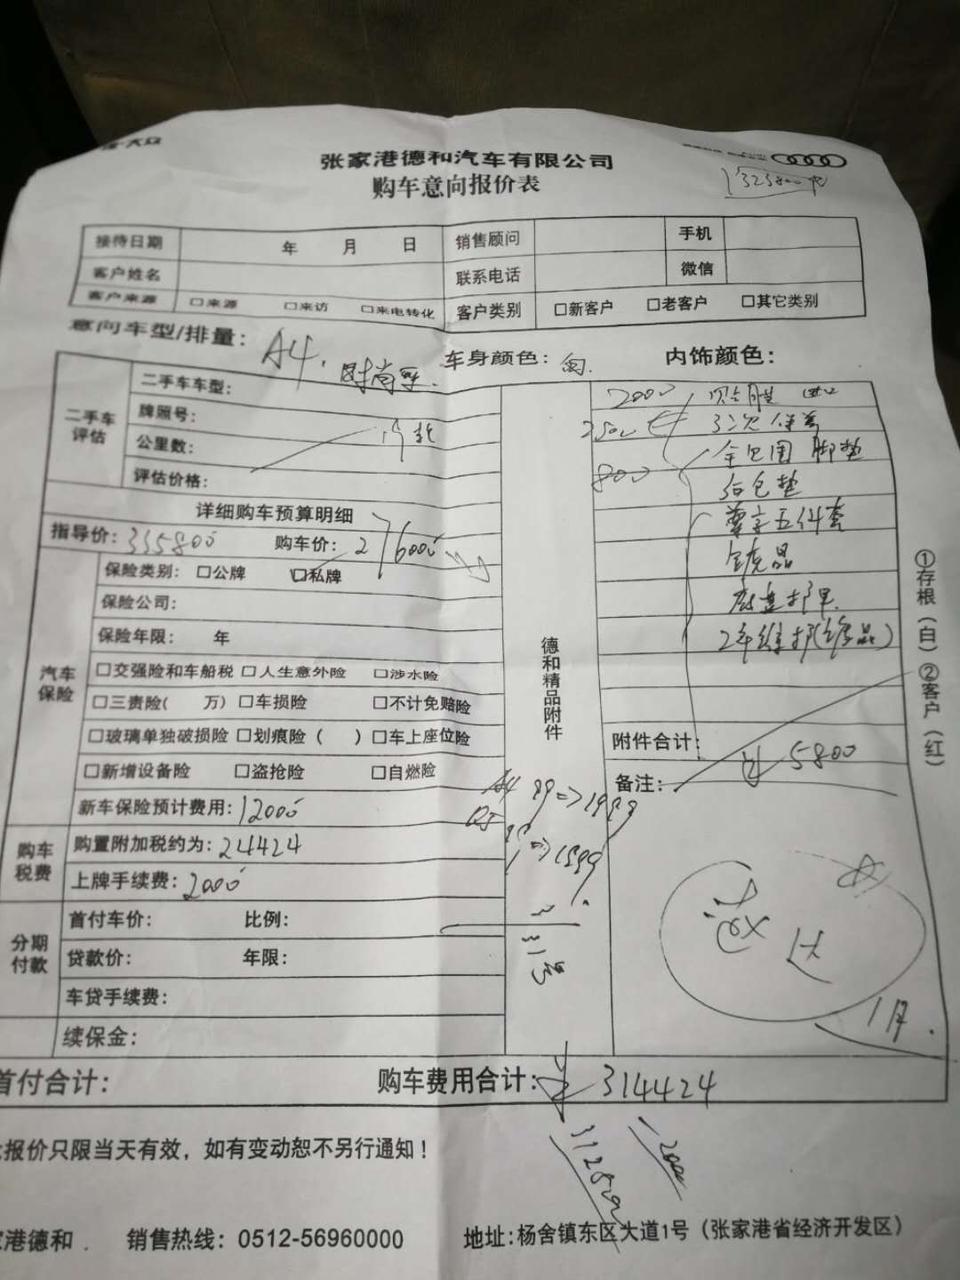 张家港德和汽车有限公司
购车意向报价表
接待日期 年 月 日 销售顾问 手机
客户姓名 联系电话 微信
客户来源 □来源 □来访 □来电转化 客户类别 □新客户 □老客户 □其它类别
意向车型/排量: A4. 时尚型. 车身颜色: 内饰颜色:
二手车评估
二手车车型:
牌照号:
公里数:
评估价格:
2000
3次保养
800 全包围脚垫
后备垫
五件套
底盘护甲
详细购车预算明细
指导价: 335800 购车价: 276000
汽车保险
保险类别: □公牌 □私牌
保险公司:
保险年限: 年
□交强险和车船税 □人生意外险 □涉水险
□三责险( 万) □车损险 □不计免赔险
□玻璃单独破损险 □划痕险 ( ) □车上座位险
□新增设备险 □盗抢险 □自燃险
新车保险预计费用: 12000
德和精品附件
附件合计: ¥ 5800
备注:
A4 99=>1999
Q5
购车税费
购置附加税约为: 24424
上牌手续费: 2000
分期付款
首付车价: 比例:
贷款价: 年限:
车贷手续费:
续保金:
1月.
首付合计: 购车费用合计: ¥ 314424
报价只限当天有效，如有变动恕不另行通知！
港德和 销售热线: 0512-56960000 地址: 杨舍镇东区大道1号（张家港省经济开发区）
①存根(白) ②客户(红)